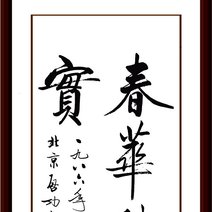 春華
實
一九八六年
北京啟功